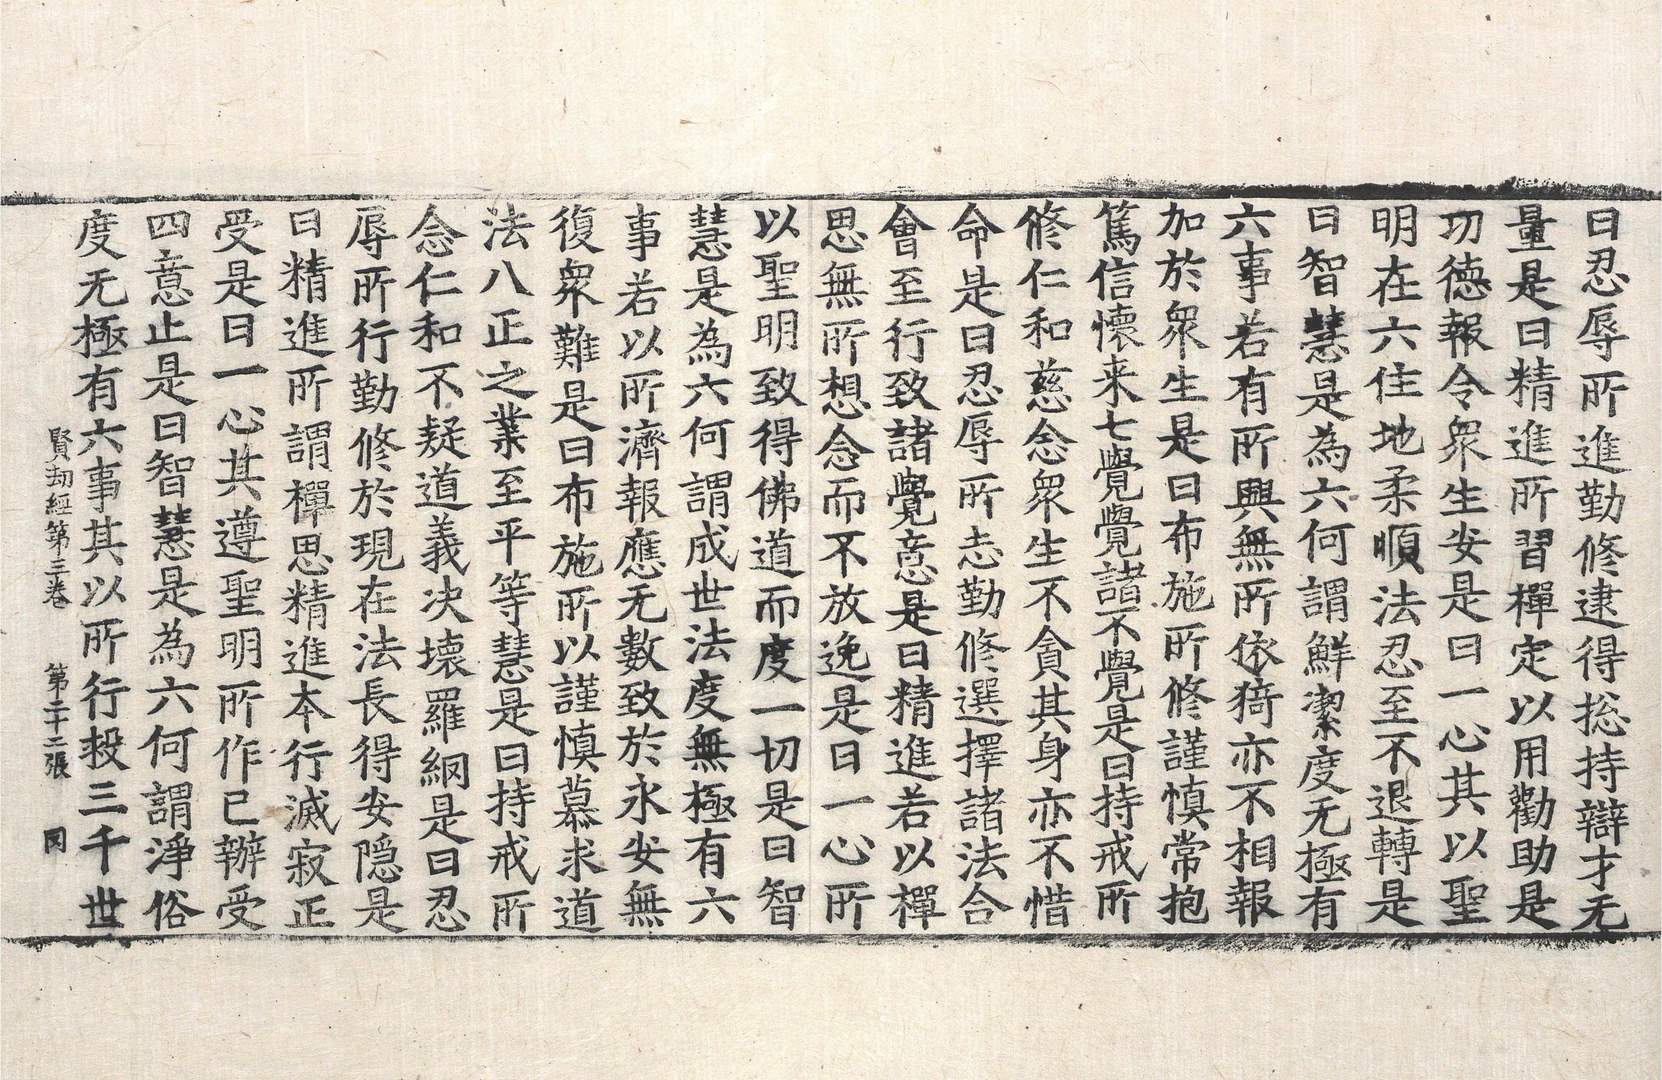 曰忍辱所進勤修逮得揔持辯才无
量是曰精進所習禪定以用勸助是
功德報令衆生安是曰一心其以聖
明在六住地柔順法忍至不退轉是
曰智慧是為六何謂鮮潔度无極有
六事若有所興無所依猗亦不相報
加於衆生是曰布施所修謹慎常抱
篤信懷来七覺覺諸不覺是曰持戒所
修仁和慈念衆生不貪其身亦不惜
命是曰忍辱所志勤修選擇諸法合
會至行致諸覺意是曰精進若以禪
思無所想念而不放逸是曰一心所
以聖明致得佛道而度一切是曰智
慧是為六何謂成世法度無極有六
事若以所濟報應无數致於永安無
復衆難是曰布施所以謹慎慕求道
法八正之業至平等慧是曰持戒所
念仁和不疑道義决壞羅網是曰忍
辱所行勤修於現在法長得安隱是
曰精進所謂禪思精進本行滅寂正
受是曰一心其遵聖明所作已辦受
四意止是曰智慧是為六何謂淨俗
度无極有六事其以所行救三千世
賢劫經第三卷 第二十二張 罔